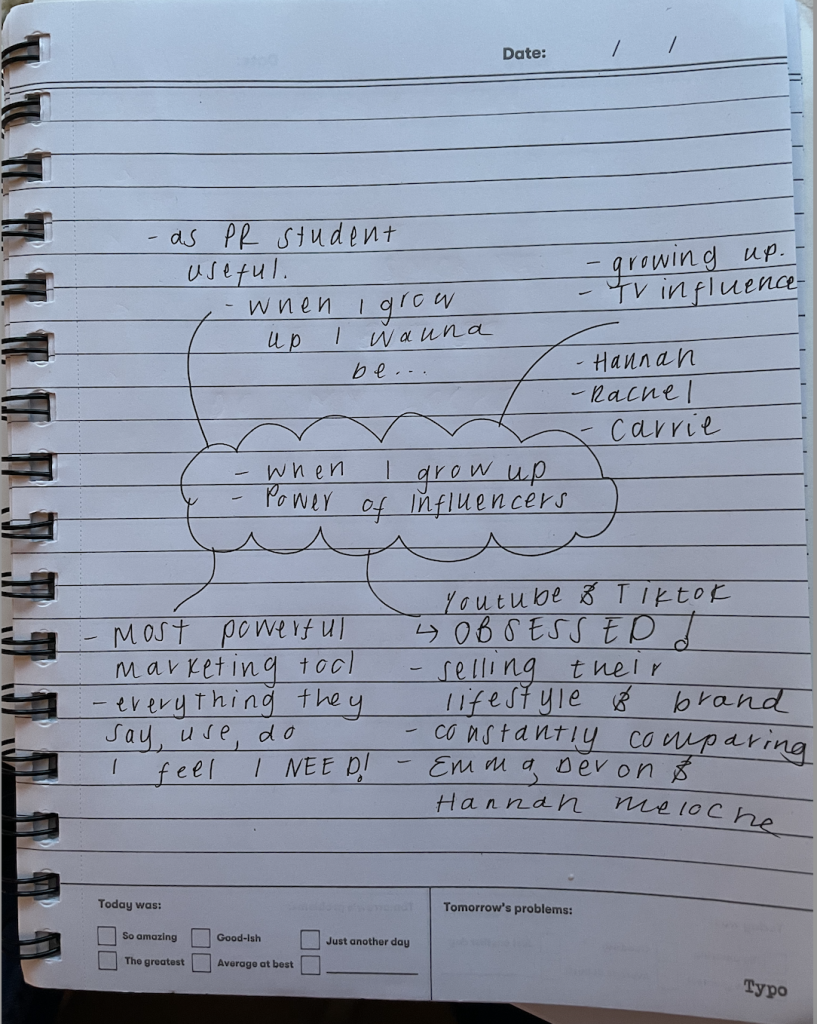 Date: / /
- as PR student
useful.
- when I grow
up I wanna
be...
- growing up.
- TV influence
- Hannah
- Rachel
- Carrie
- when I grow up
- Power of influencers
- MOST powerful
marketing tool
- everything they
say, use, do
I feel I NEED!
Youtube & Tiktok
↳ OBSESSED!
- selling their
lifestyle & brand
- constantly comparing
- Emma, Devon &
Hannah meloche
Today was:
So amazing
Good-ish
Just another day
The greatest
Average at best
Tomorrow's problems:
Typo